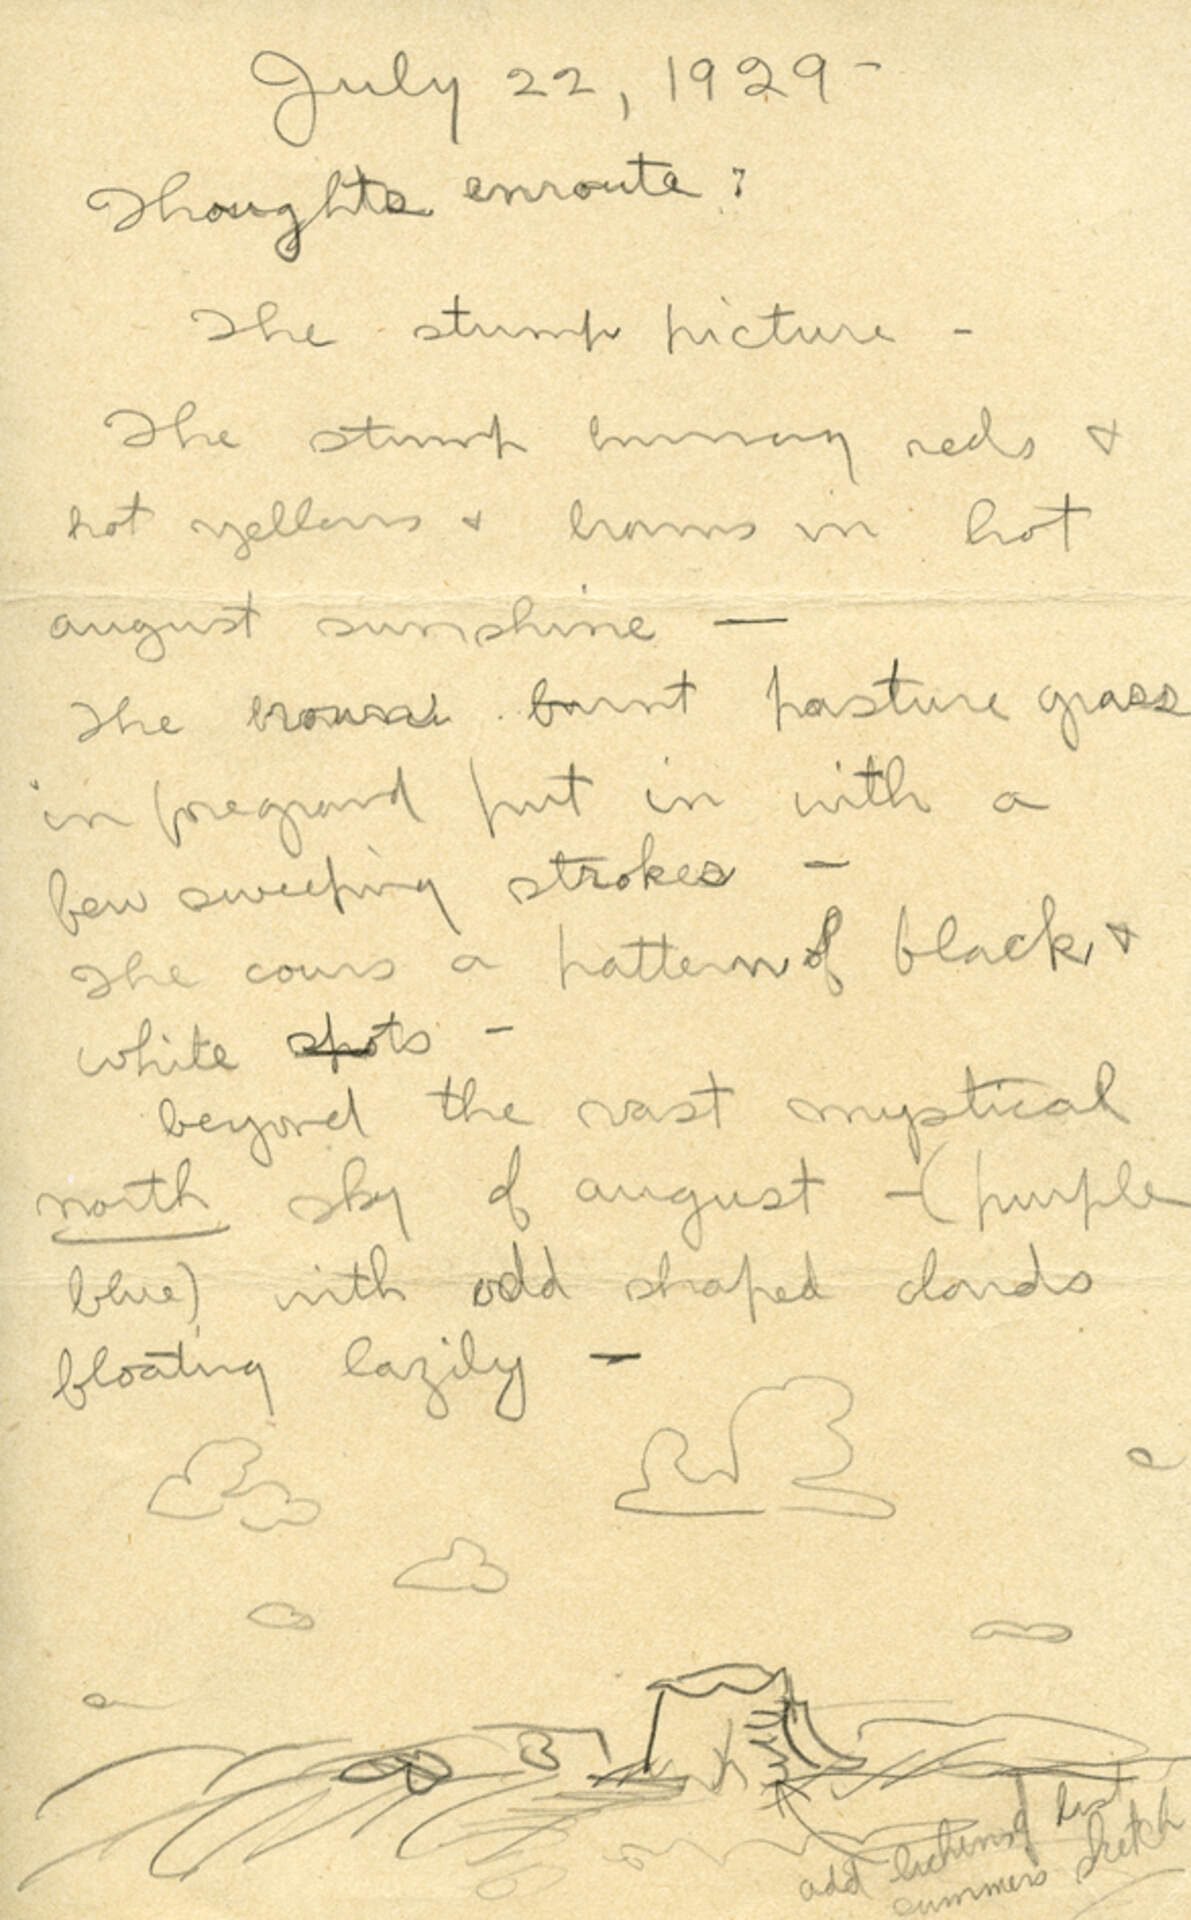 July 22, 1929 -
Thoughts enroute:
The stump picture -
The stump burning reds &
hot yellows & browns in hot
august sunshine —
The brown burnt pasture grass
in foregrond put in with a
few sweeping strokes -
The cows a pattern of black &
white spots -
beyond the vast mystical
north sky of august - (purple
blue) with odd shaped clouds
floating lazily -
add lichens of last
summers sketch